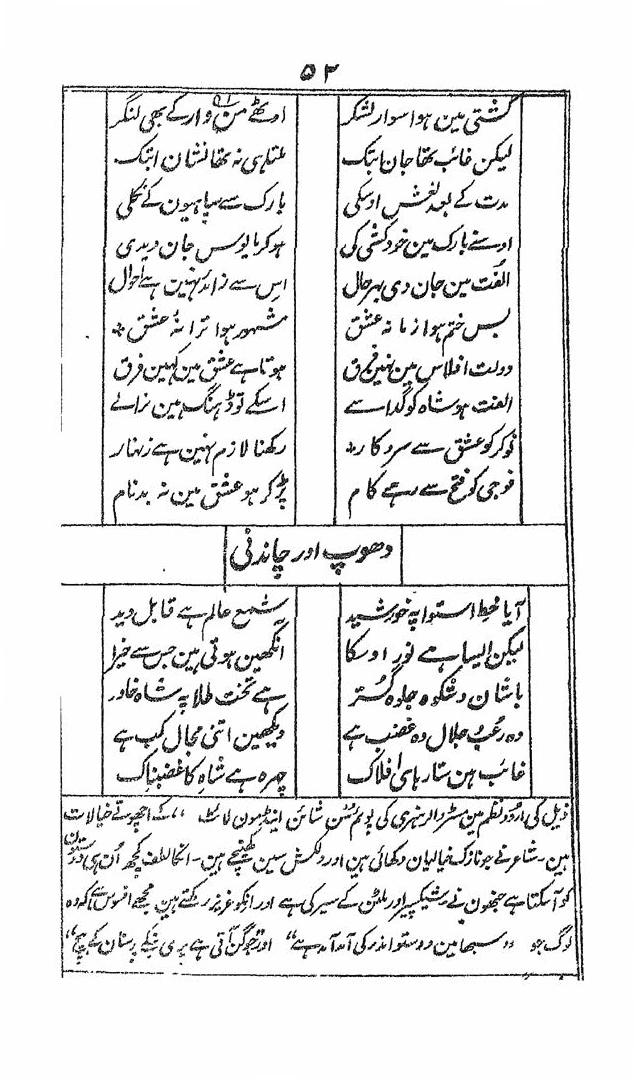 ۵۲
کشتی مین ہوا سوار لشکر اوٹھے من و ار کے بھی لنگر
لیکن غائب تھا جان ابتک ملتا ہی نہ تھا نشان ابتک
مدت کے بعد نعش اوسکی بارک سے سپاہیون کے نکلی
اوسنے بارک مین خودکشی کی ہو کر مایوس جان دیدی
الفت مین جان دی بہرحال اِس سے زائد نہین ہے احوال
بس ختم ہوا زمانہ عشق مشہور ہوا ترانۂ عشق
دولت افلاس مین نہین فرق ہوتا ہے عشق مین کہین فرق
الفت ہو شاہ کو گدا سے اسکے تو ڈہنگ ہین نرالے
نوکر کو عشق سے سروکار رکھنا لازم نہین ہے زنہار
فوجی کو فتح سے رہے کام پڑ کر ہو عشق مین نہ بدنام
دھوپ اور چاندنی
آیا خط استوا پہ خورشید شمع عالم ہے قابل دید
لیکن ایسا ہے نور اوسکا آنکھین ہوتی ہین جس سے خیرا
باشان و شکوہ جلوہ گستر ہے تخت طلا پہ شاہ خاور
وہ رعب جلال وہ غضب ہے دیکھین اتنی مجال کب ہے
غائب ہین ستارہای افلاک چہرہ ہے شاہ کا غضبناک
ذیل کی اردو نظم مین مسٹر والر ہنری کی پوئم سن شائن اینڈ مون لائٹ ،، کے اچھوتے خیالات
ہین - شاعر نے جو نازک خیالیان دکھائی ہین اور دلکش سین کھینچے ہین - انکا لطف کچھ اُن ہی دوستون
کو آسکتا ہے جنھون نے شیکسپیر اور ملٹن کے سیر کی ہے اور انکو عزیز رکھتے ہین مجھے افسوس ہے کہ وہ
لوگ جو ،، سبھا مین دوستو اندر کی آمد آمد ہے “ اور ”جوگن آتی ہے پری بنکے پرستان کے بیچ“